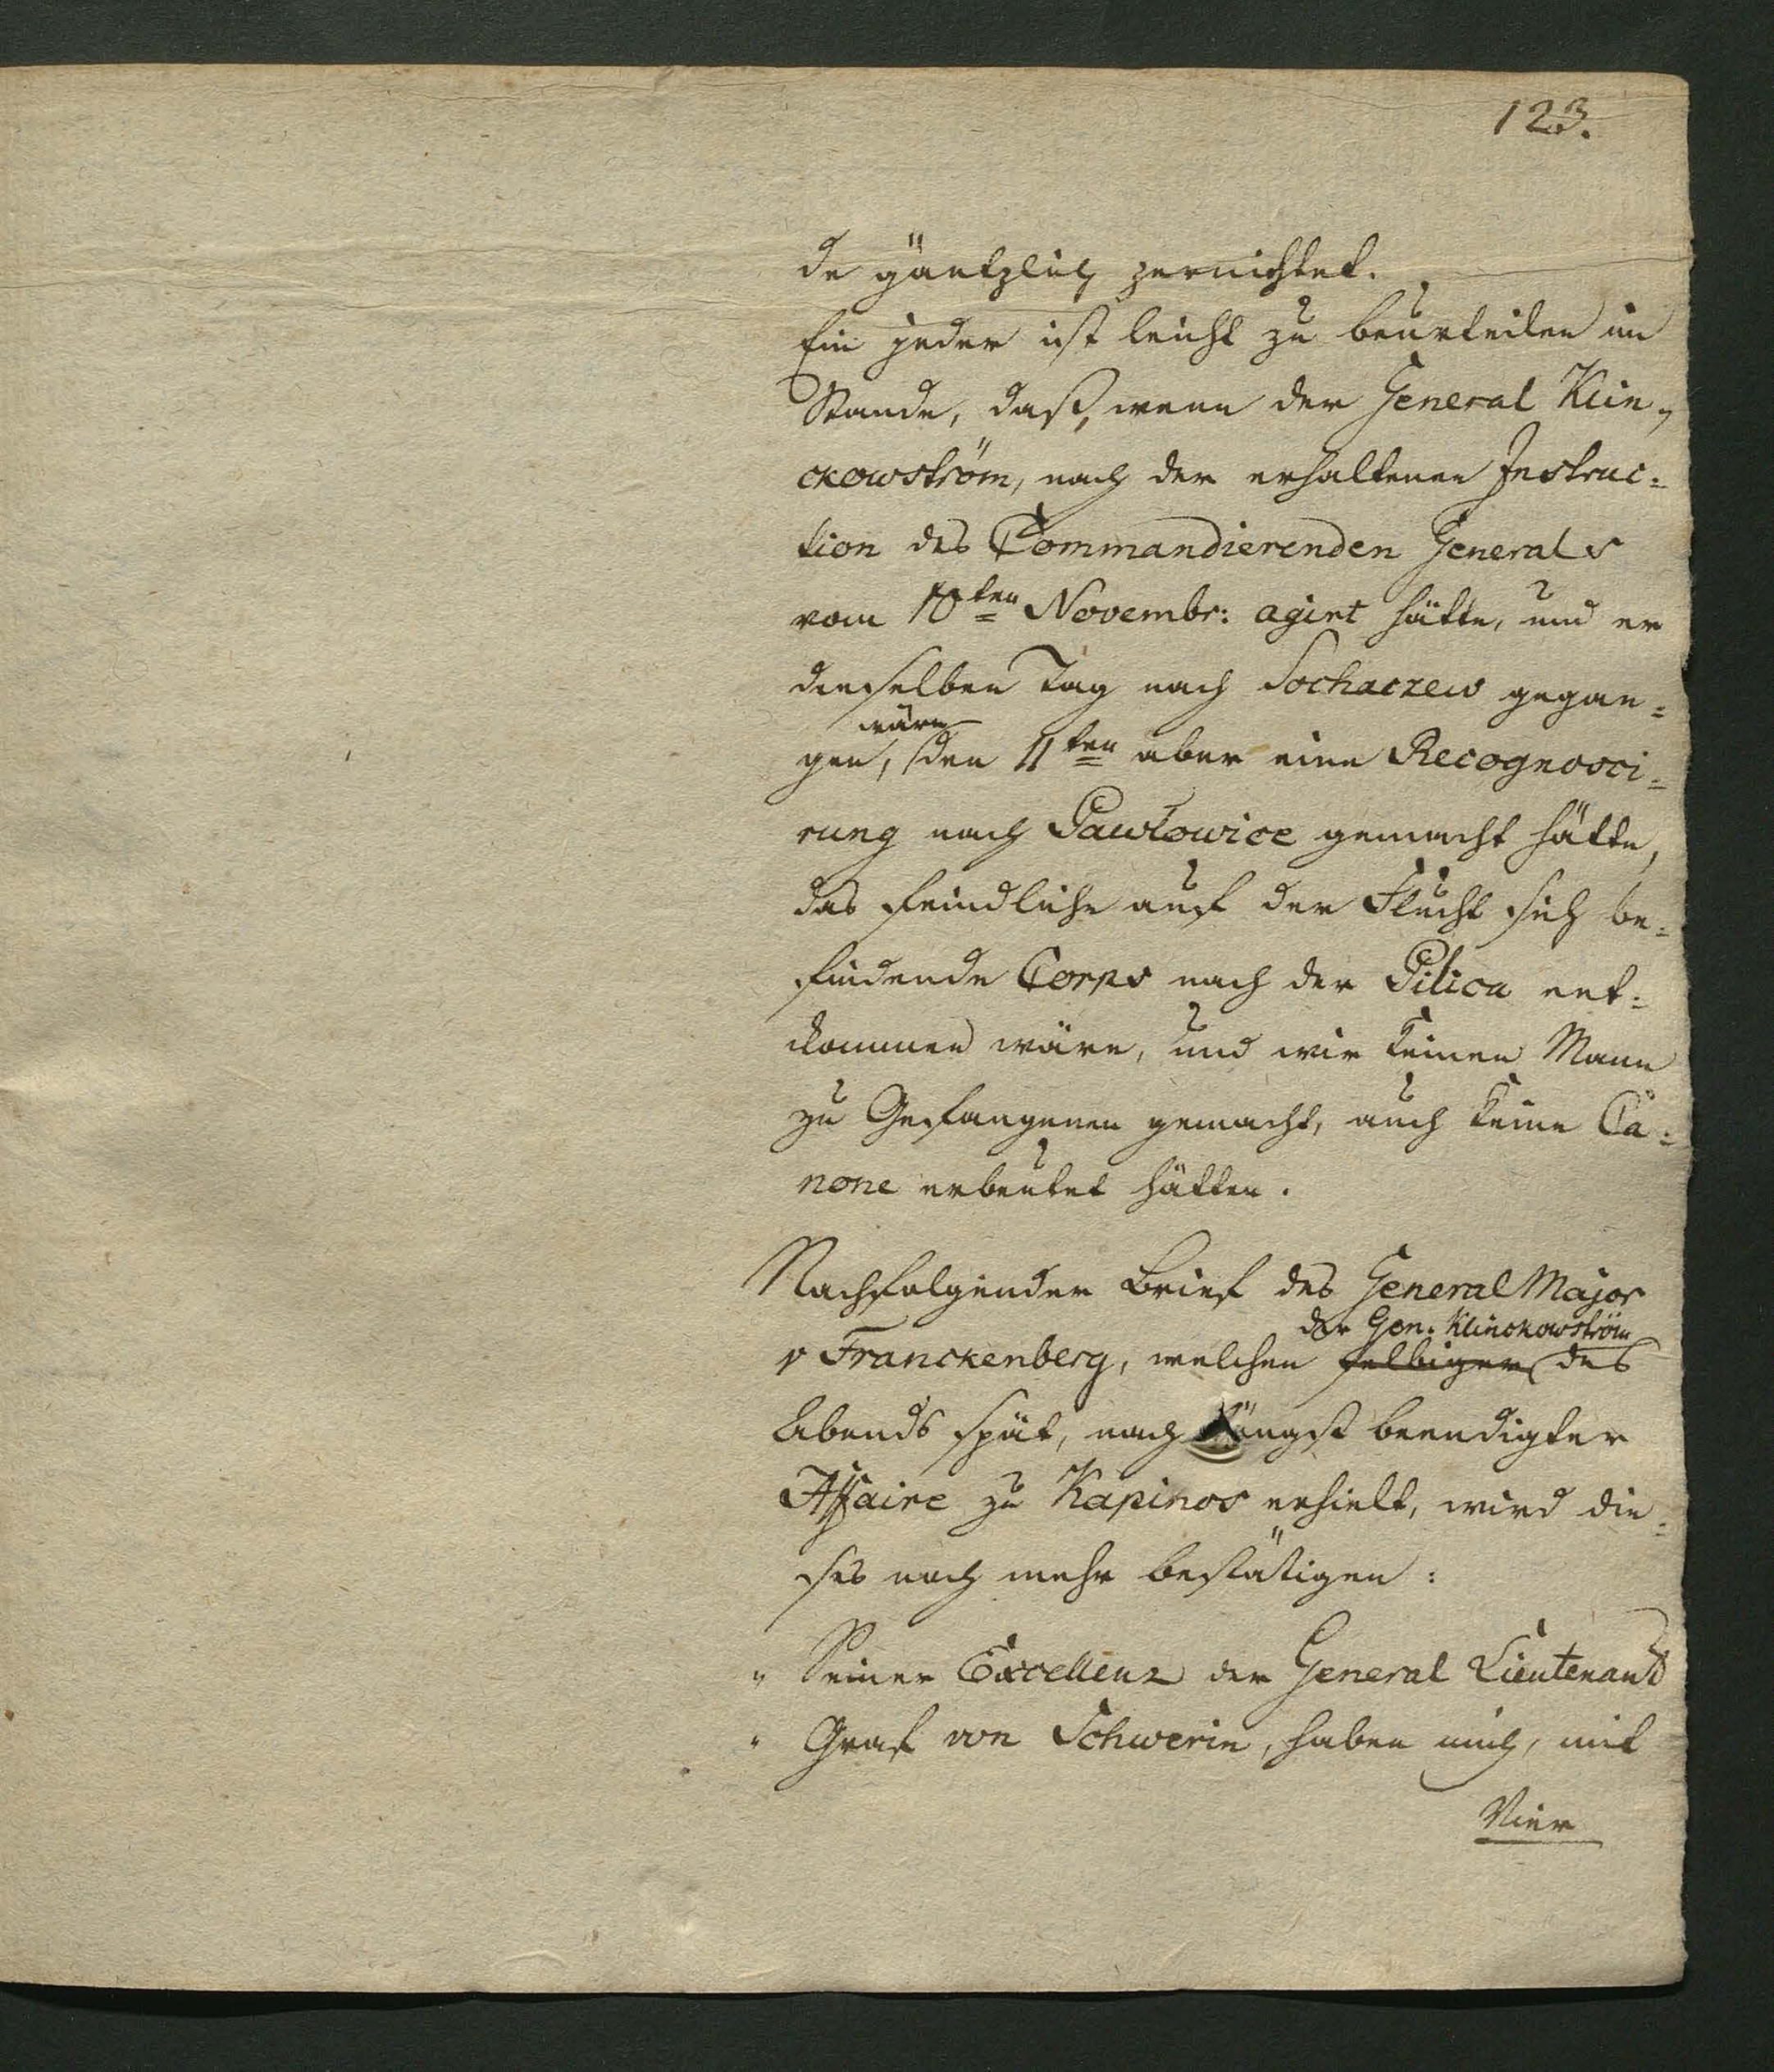 123.
de gäntzlich zernichtet.
Ein jeder ist leicht zu beurteilen im
Stande, daß, wenn der General Klin-
ckowström, nach der erhaltenen Instruc=
tion des Commandierenden Generals
vom 10ten Novembr: agirt hätte, und er
denselben Tag nach Sochaczew gegan=
wäre
gen, den 11ten aber eine Recognosci=
rung nach Pawłowice gemacht hätte,
das feindliche auf der Flucht sich be=
findende Corps nach der Pilica ent=
kommen wäre, und wir keinen Mann
zu Gefangenen gemacht, auch keine Ca=
none erbeutet hätten.
Nachfolgender Brief des General Major
der Gen. Klinckowström
v Franckenberg, welchen selbiger des
Abends spät, nach längst beendigter
Affaire zu Kapinos erhielt, wird die=
ses noch mehr bestätigen:
" Seiner Excellenz der General Lieutenant
" Graf von Schwerin, haben mich, mit
Vier